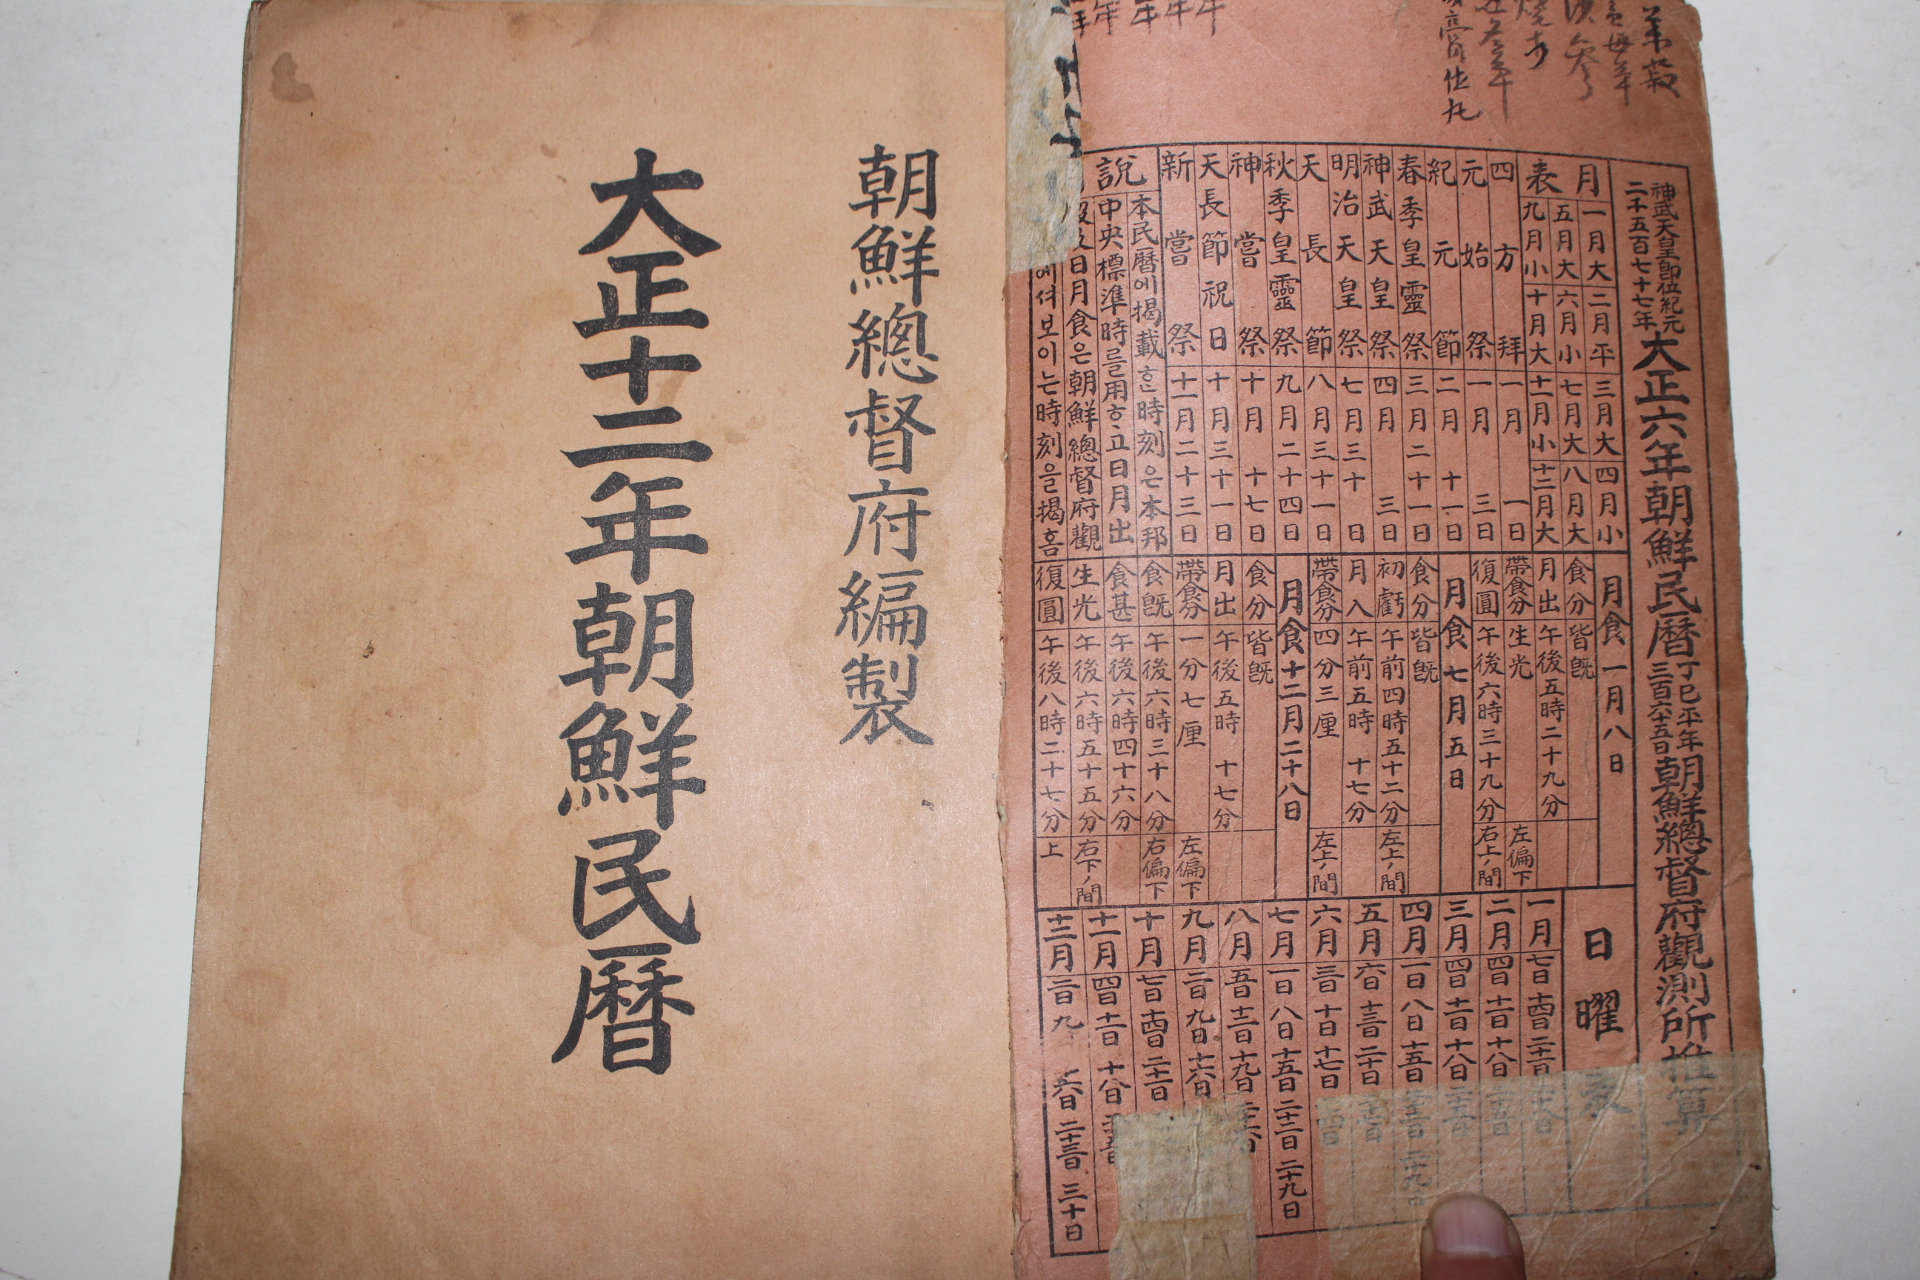 神武天皇即位紀元
二千五百七十七年
大正六年朝鮮民曆
丁巳平年
三百六十五日
朝鮮總督府觀測所推算
月表
一月大 二月平 三月大 四月小
五月大 六月小 七月大 八月大
九月小 十月大 十一月小 十二月大
四方拜 一月一日
元始祭 一月三日
紀元節 二月十一日
春季皇靈祭 三月二十一日
神武天皇祭 四月三日
明治天皇祭 七月三十日
天長節 八月三十一日
秋季皇靈祭 九月二十四日
神嘗祭 十月十七日
天長節祝日 十月三十一日
新嘗祭 十一月二十三日
說
本民曆에揭載ᄒᆞᆫ時刻은本邦
中央標準時를用ᄒᆞ고日月出
日月食은朝鮮總督府觀
에셔보이는時刻을揭홈
月食 一月八日
食分 皆旣
月出 午後五時二十九分
帶食分 生光 左偏下
復圓 午後六時三十九分 右上ノ間
月食 七月五日
食分 皆旣
初虧 午前四時五十二分 左上ノ間
月入 午前五時十七分
帶食分 四分三厘 左上ノ間
月食 十二月二十八日
食分 皆旣
月出 午後五時十七分
帶食分 一分七厘 左偏下
食旣 午後六時三十八分 右偏下
食甚 午後六時四十六分
生光 午後六時五十五分 右下ノ間
復圓 午後八時二十七分 上
日曜表
一月 七日 十四日 二十一日 二十八日
二月 四日 十一日 十八日 二十五日
三月 四日 十一日 十八日 二十五日
四月 一日 八日 十五日 二十二日 二十九日
五月 六日 十三日 二十日 二十七日
六月 三日 十日 十七日 二十四日
七月 一日 八日 十五日 二十二日 二十九日
八月 五日 十二日 十九日 二十六日
九月 二日 九日 十六日
十月 七日 十四日 二十一日
十一月 四日 十一日 十八日 二十五日
十二月 二日 九 十六日 二十三日 三十日
朝鮮總督府編製
大正十二年朝鮮民曆